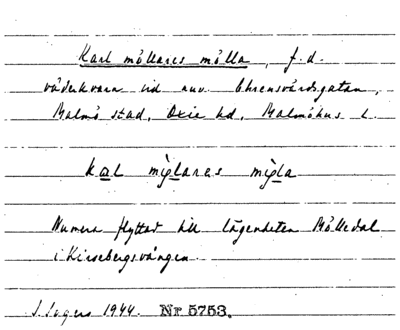 Karl möllares mölla, f.d.
väderkvarn vid nuv. Ehrensvärdsgatan,
Malmö stad, Oxie hd, Malmöhus l.
kal mylares myla
Numera flyttad till lägenheten Mölledal
i Kirsebergsvången.
1944. Nr 5753.